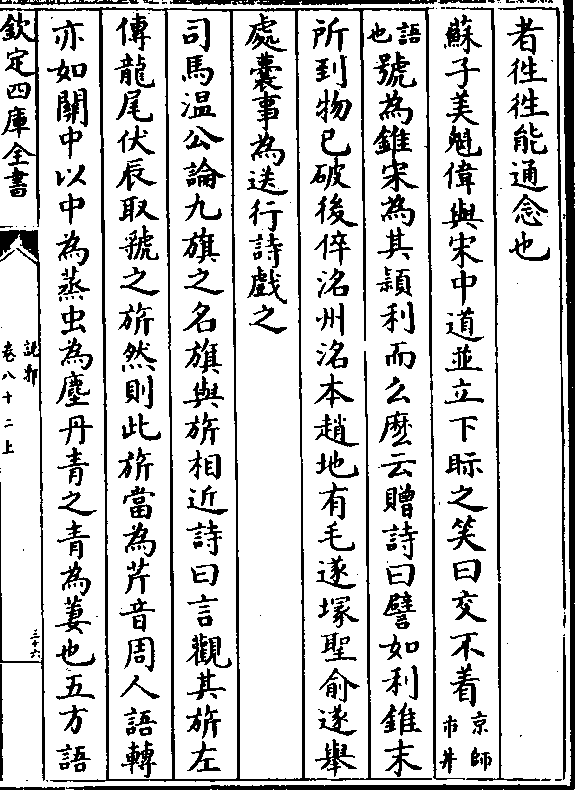 者徃徃能通念也
蘇子美魁偉與宋中道並立下眎之笑曰交不着京師市井
語也號為錐宋為其頴利而么麽云贈詩曰譬如利錐末
所到物已破後倅洺州洺本趙地有毛遂塚聖俞遂舉
處囊事為送行詩戲之
司馬温公論九旗之名旗與旂相近詩曰言觀其旂左
傳龍尾伏辰取虢之旂然則此旂當為芹音周人語轉
亦如關中以中為蒸虫為塵丹青之青為萋也五方語
欽定四庫全書
說郛
卷八十二上
三十六